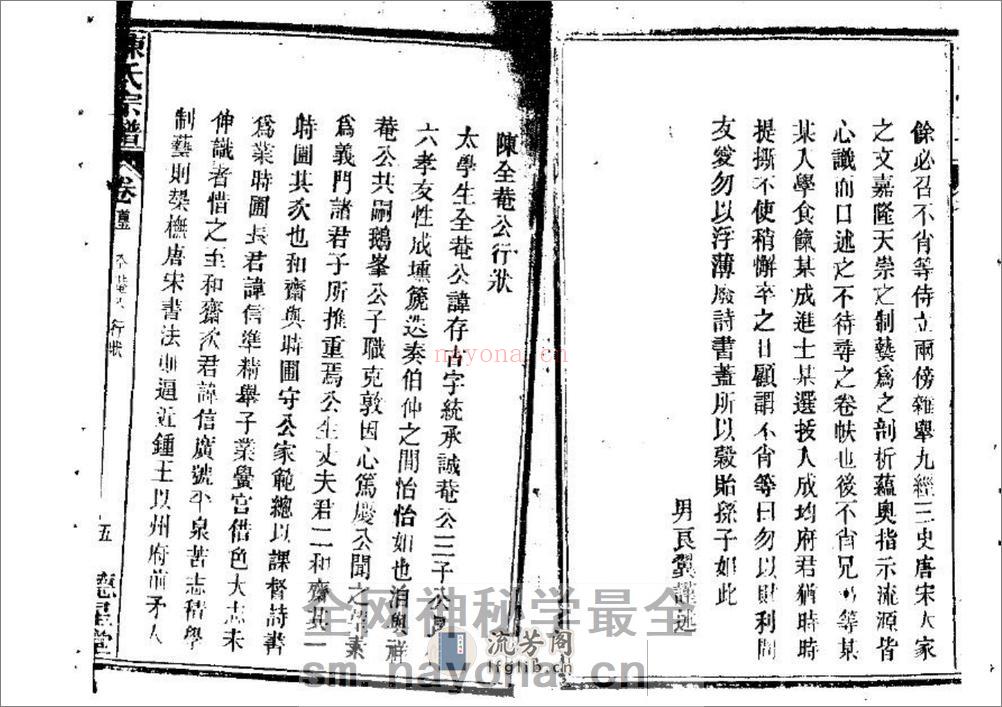 餘必召不肖等侍立兩傍雜舉九經三史唐宋大家
之文嘉隆天崇之制藝爲之剖析蘊奧指示流源皆
心識而口述之不待尋之卷帙也後不肖兄等某
某入學食餼某成進士某選拔入成均府君猶時時
提撕不使稍懈卒之日顧謂不肖等曰勿以財利間
友愛勿以浮薄廢詩書蓋所以穀貽孫子如此
男良翼謹述
陳全菴公行狀
太學生全菴公諱存古字統承誠菴公三子公
六孝友性成壎箎迭奏伯仲之間怡怡如也洎與祥
菴公共嗣鵝峯公子職克敦因心篤慶公聞之素
爲義門諸君子所推重焉公生丈夫君二和齋其一
時圃其次也和齋與時圃守公家範總以課督詩書
爲業時圃長君諱信準精舉子業黌宮借色大志未
伸識者惜之至和齋次君諱信廣號平泉苦志積學
制藝則槼橅唐宋書法則逼近鍾王以州府前矛入
陳氏宗譜
卷
行狀
五
聚星堂
全网神秘学最全
sm.nayona.cn
nayona.cn
流芳阁
lfglib.cn